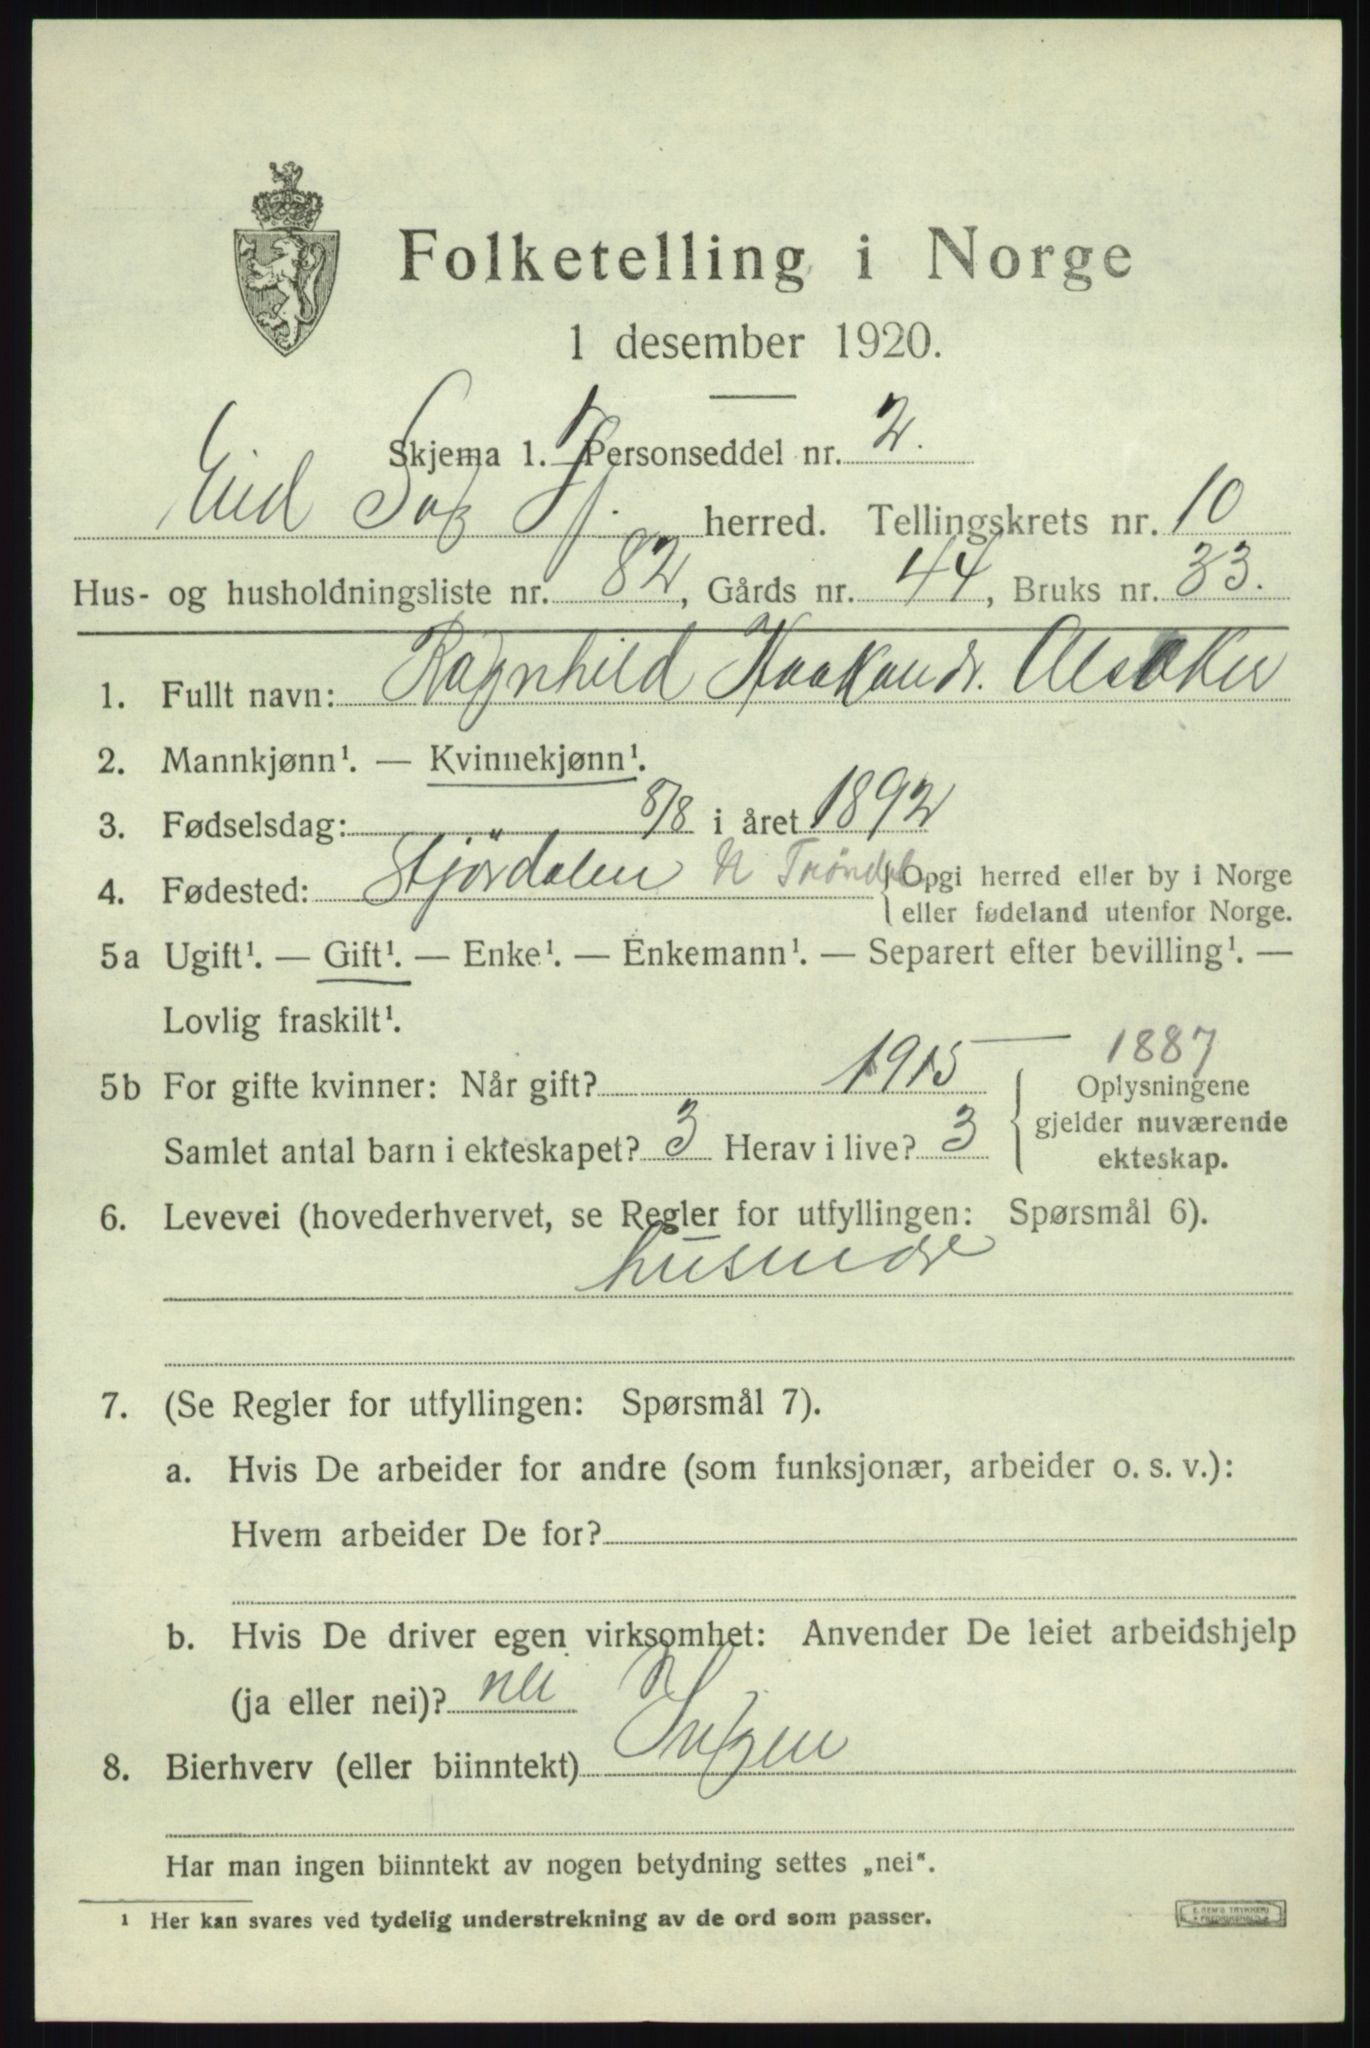 Folketelling i Norge
1 desember 1920.
Skjema 1. Personseddel nr. 2.
Eid Sog Fj. herred. Tellingskrets nr. 10
Hus- og husholdningsliste nr. 82, Gårds nr. 44, Bruks nr. 33.
1. Fullt navn: Ragnhild Haakondr. Alsaker
2. Mannkjønn¹. — Kvinnekjønn¹.
3. Fødselsdag: 8/8 i året 1892
4. Fødested: Stjördalen N Trøndel. Opgi herred eller by i Norge
eller fødeland utenfor Norge.
5a Ugift¹. — Gift¹. — Enke¹. — Enkemann¹. — Separert efter bevilling¹. —
Lovlig fraskilt¹.
5b For gifte kvinner: Når gift? 1915 — 1887
Samlet antal barn i ekteskapet? 3 Herav i live? 3
Oplysningene
gjelder nuværende
ekteskap.
6. Levevei (hovederhvervet, se Regler for utfyllingen: Spørsmål 6).
husmor
7. (Se Regler for utfyllingen: Spørsmål 7).
a. Hvis De arbeider for andre (som funksjonær, arbeider o. s. v.):
Hvem arbeider De for?
b. Hvis De driver egen virksomhet: Anvender De leiet arbeidshjelp
(ja eller nei)? nei
8. Bierhverv (eller biinntekt) Ingen
Har man ingen biinntekt av nogen betydning settes „nei“.
¹ Her kan svares ved tydelig understrekning av de ord som passer.